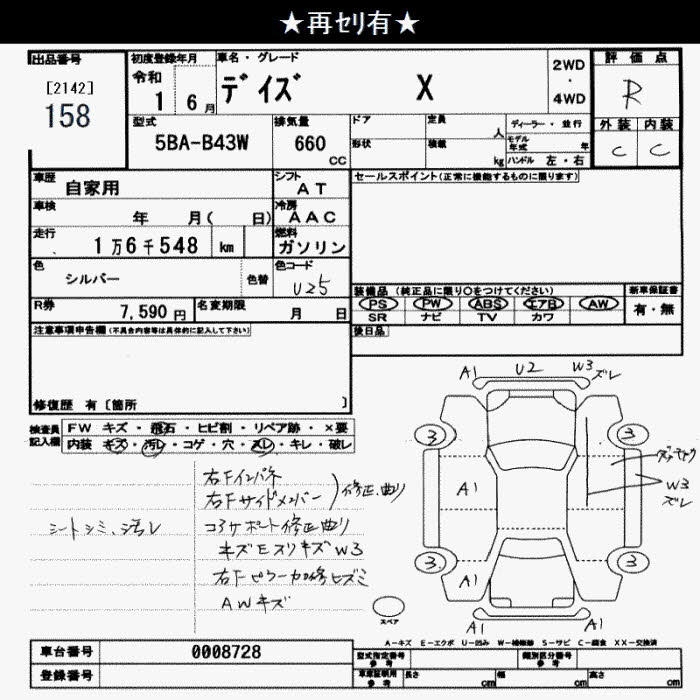 ★再セリ有★
出品番号
[2142]
158
初度登録年月
令和
1 6月
車名・グレード
デイズ X
2WD
・
4WD
評価点
R
外装 内装
C C
型式
5BA-B43W
排気量
660
CC
ドア
定員
人
形状
積載
kg
ディーラー・並行
モデル年式 年
ハンドル 左・右
車歴
自家用
シフト
AT
車検
年 月( 日)
冷房
AAC
走行
1万6千548 km
燃料
ガソリン
色
シルバー
色替
色コード
U25
R券
7,590円
名変期限
月 日
セールスポイント(正常に機能するものに限ります)
装備品(純正品に限り○をつけてください)
PS PW ABS エアB AW
SR ナビ TV カワ
新車保証書
有・無
後日品
注意事項申告欄(不具合内容等は具体的に記入して下さい)
修復歴 有〔箇所 〕
検査員
記入欄
FW キズ・飛石・ヒビ割・リペア跡・×要
内装 キズ・汚レ・コゲ・穴・スレ・キレ・破レ
シートシミ、汚レ
右Fインパネ
右Fサイドメンバー 修正、曲り
コアサポート修正曲り
キズEスリキズW3
右Fピラー加修ヒズミ
AWキズ
A1 U2 W3 ズレ
3 3
A1
W3
ズレ
3 3
A1
A1 A1
スペア
A-キズ E-エクボ U-凹み W-補修跡 S-サビ C-腐食 XX-交換済
車台番号
0008728
登録番号
型式指定番号
参考
類別区分番号
参考
車庫証明用
参考
長さ cm
幅 cm
高さ cm